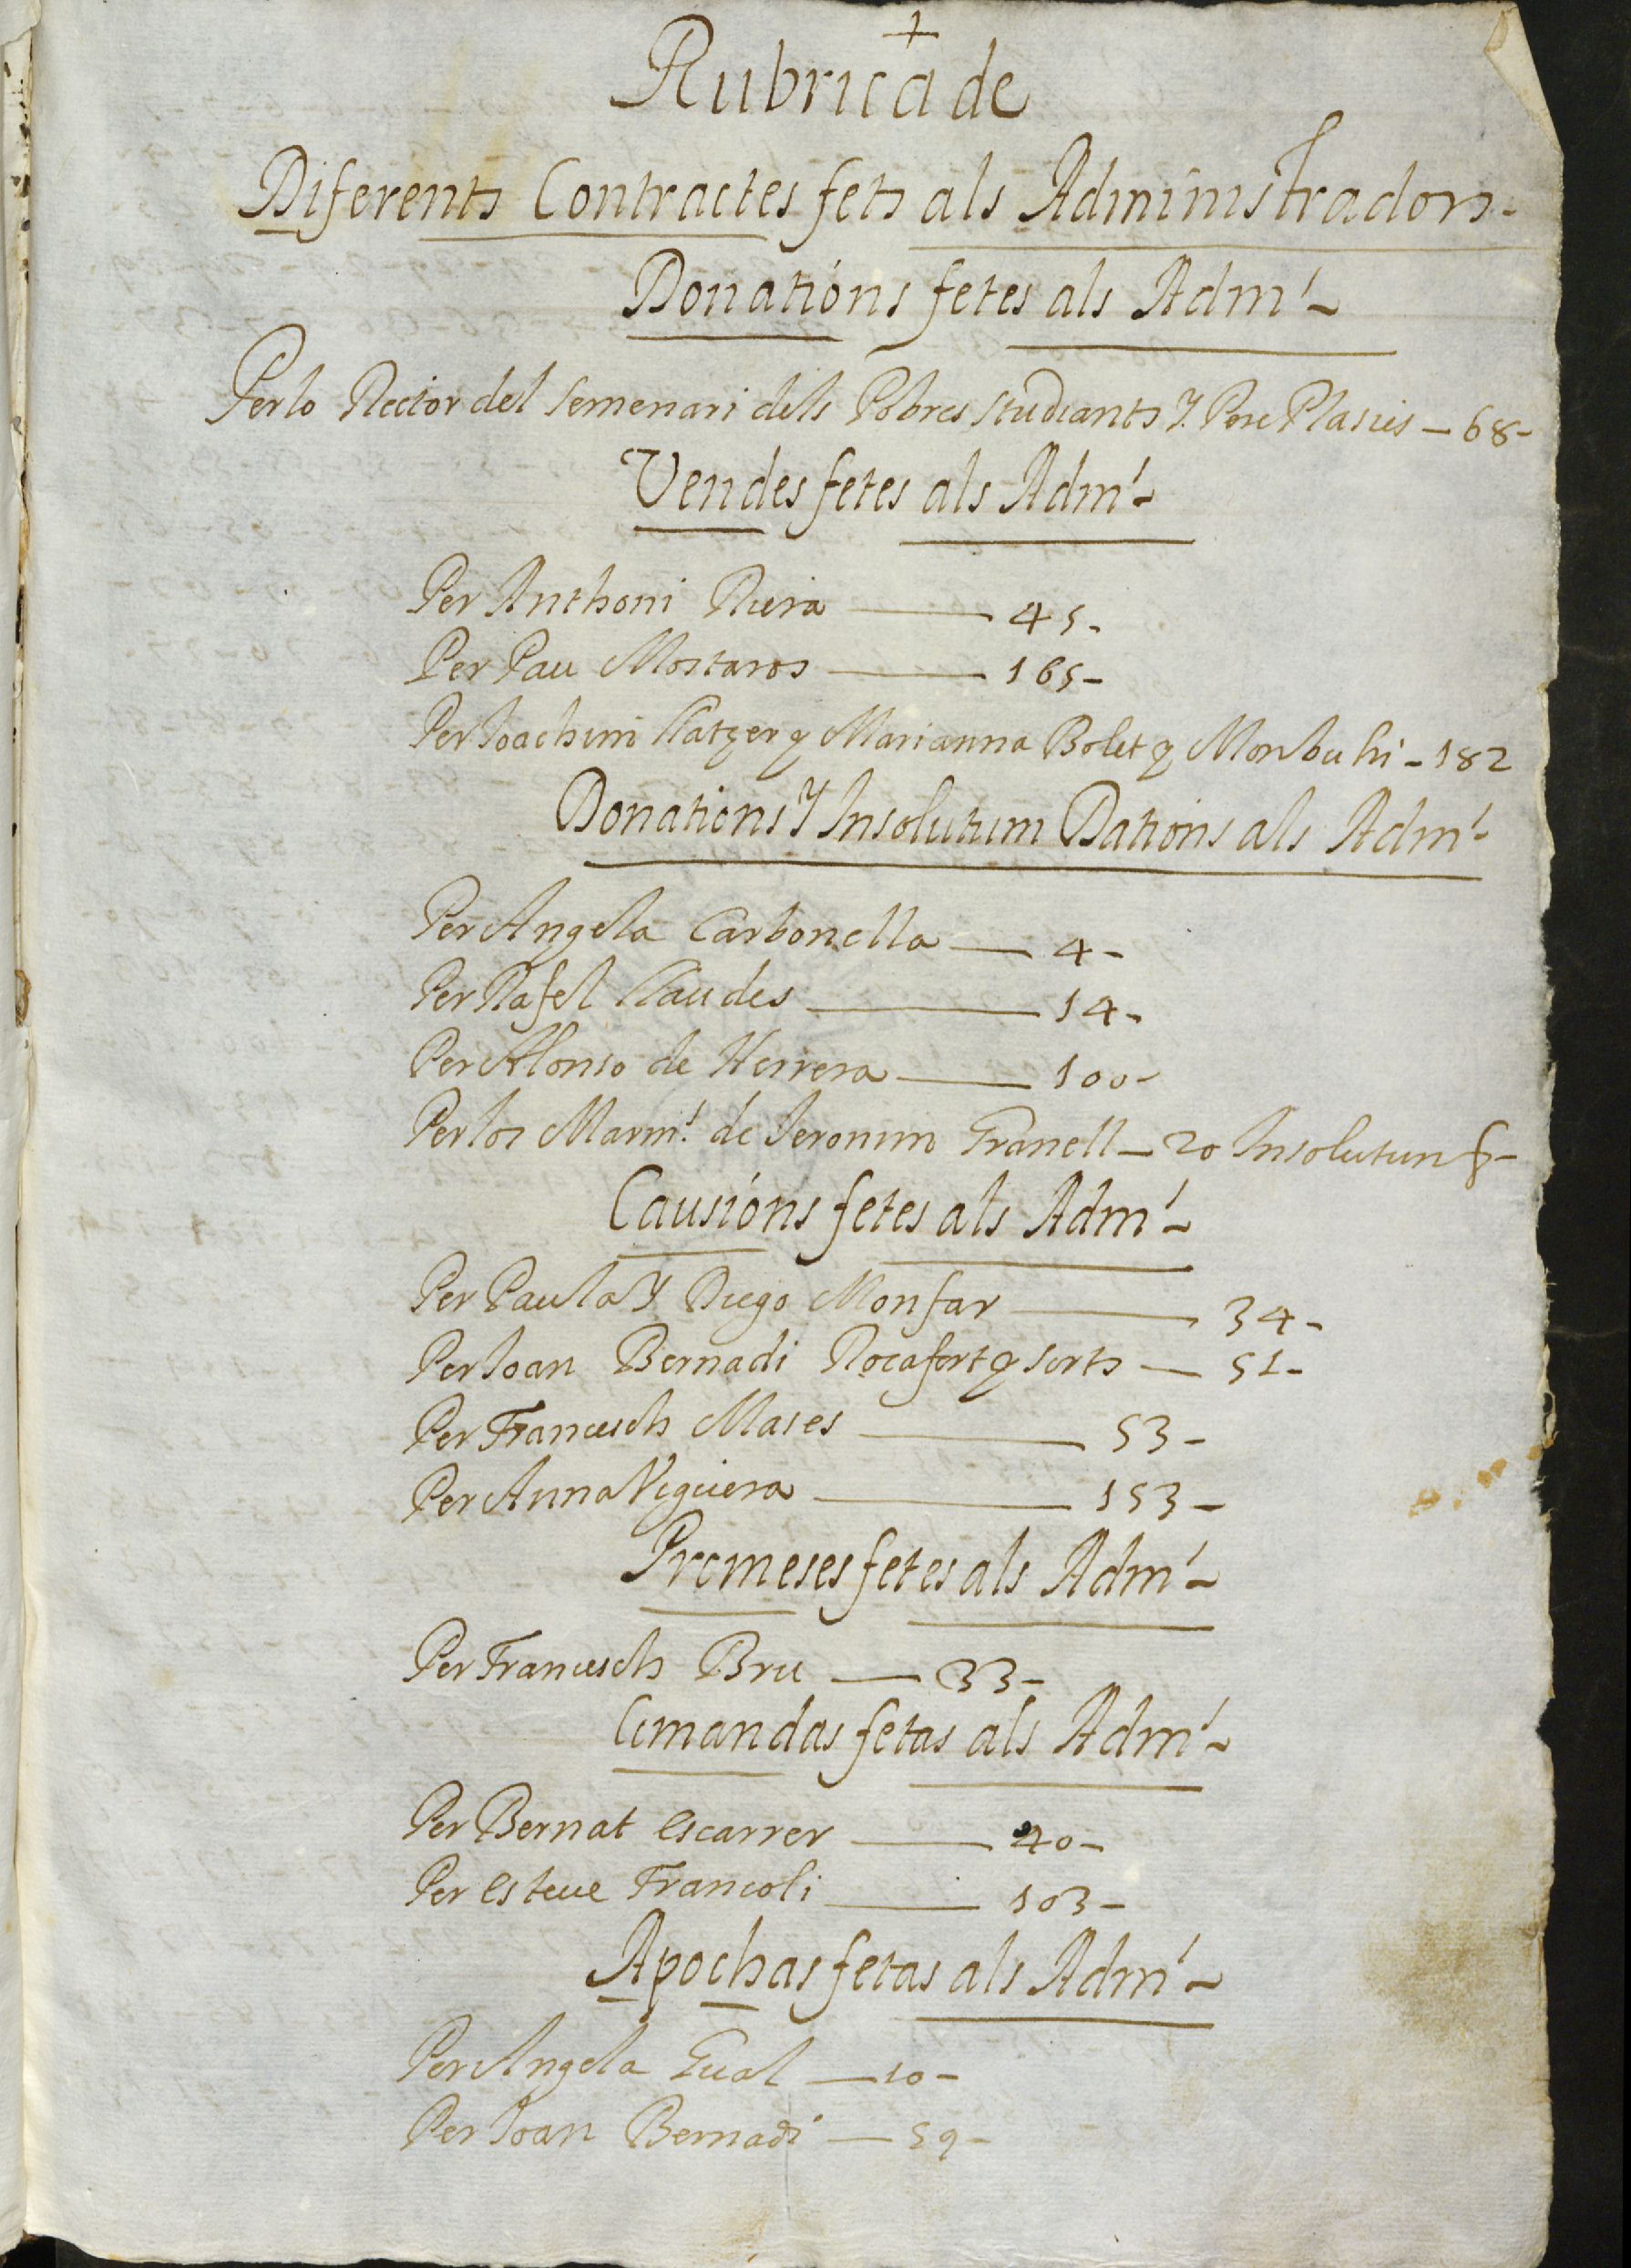 +
Rubrica de
Diferents Contractes fets als Administradors.
Donations fetes als Adm.~
Per lo Rector del Semenari dels Pobres Studiants Y. Pere Plasies - 68-
Vendes fetes als Adm.~
Per Anthoni Riera — 45-
Per Pau Mostaros — 165-
Per Joachim y Marianna Bolet y - 182
Donations Y Insolutum Dations als Adm.~
Per Angela Carbonella — 4-
Per Rafel Llaudes — 14-
Per Alonso de Herrera — 100-
Per los Marm.! de Jeronim Granell — 20 Insolutum
Causions fetes als Adm.~
Per Paula Y Diego Monfar — 34-
Per Joan Bernadi Rocafort y — 51-
Per Francesch Mases — 53-
Per Anna Viguiera — 153-
Promeses fetes als Adm.~
Per Francesch Bru — 33-
Comandas fetas als Adm.~
Per Bernat Escarrer — 40-
Per Esteve Francoli — 103-
Apochas fetas als Adm.~
Per Angela Gual — 10-
Per Joan Bernadi — 59-